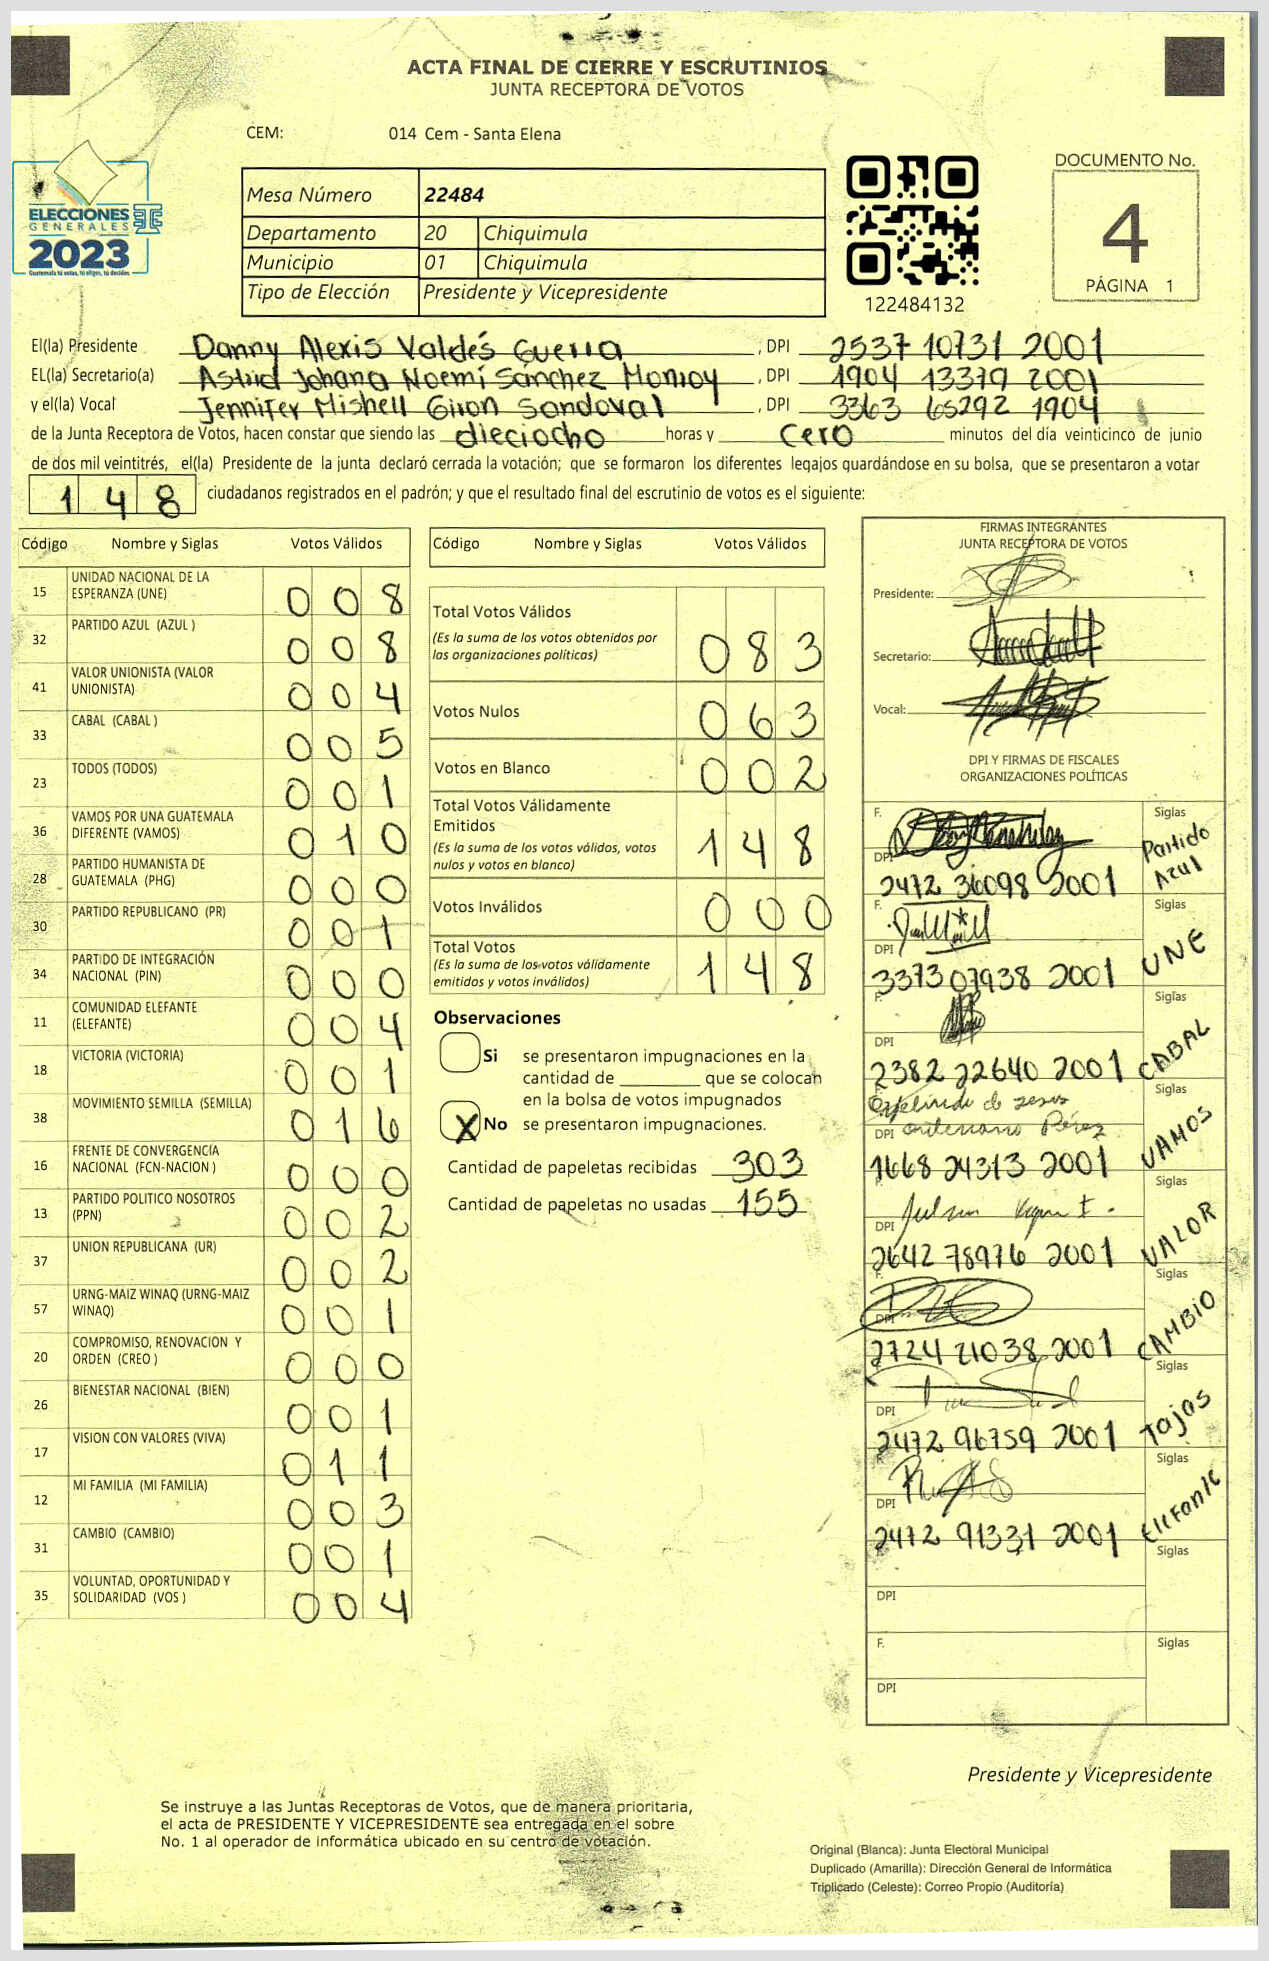 ACTA FINAL DE CIERRE Y ESCRUTINIOS
JUNTA RECEPTORA DE VOTOS
CEM: 014 Cem - Santa Elena
ELECCIONES
GENERALES
2023
Guatemala tú votas, tú eliges, tú decides
Mesa Número 22484
Departamento 20 Chiquimula
Municipio 01 Chiquimula
Tipo de Elección Presidente y Vicepresidente
122484132
DOCUMENTO No.
4
PÁGINA 1
El(la) Presidente Danny Alexis Valdés Guerra , DPI 2537 10731 2001
EL(la) Secretario(a) Astrid Johana Noemí Sánchez Monroy , DPI 1904 13379 2001
y el(la) Vocal Jennifer Mishell Giron Sandoval , DPI 3363 65292 1904
de la Junta Receptora de Votos, hacen constar que siendo las dieciocho horas y cero minutos del día veinticinco de junio
de dos mil veintitrés, el(la) Presidente de la junta declaró cerrada la votación; que se formaron los diferentes legajos guardándose en su bolsa, que se presentaron a votar
148 ciudadanos registrados en el padrón; y que el resultado final del escrutinio de votos es el siguiente:
Código Nombre y Siglas Votos Válidos
15 UNIDAD NACIONAL DE LA ESPERANZA (UNE) 008
32 PARTIDO AZUL (AZUL ) 008
41 VALOR UNIONISTA (VALOR UNIONISTA) 004
33 CABAL (CABAL ) 005
23 TODOS (TODOS) 001
36 VAMOS POR UNA GUATEMALA DIFERENTE (VAMOS) 010
28 PARTIDO HUMANISTA DE GUATEMALA (PHG) 000
30 PARTIDO REPUBLICANO (PR) 001
34 PARTIDO DE INTEGRACIÓN NACIONAL (PIN) 000
11 COMUNIDAD ELEFANTE (ELEFANTE) 004
18 VICTORIA (VICTORIA) 001
38 MOVIMIENTO SEMILLA (SEMILLA) 016
16 FRENTE DE CONVERGENCIA NACIONAL (FCN-NACION ) 000
13 PARTIDO POLITICO NOSOTROS (PPN) 002
37 UNION REPUBLICANA (UR) 002
57 URNG-MAIZ WINAQ (URNG-MAIZ WINAQ) 001
20 COMPROMISO, RENOVACION Y ORDEN (CREO ) 000
26 BIENESTAR NACIONAL (BIEN) 001
17 VISION CON VALORES (VIVA) 011
12 MI FAMILIA (MI FAMILIA) 003
31 CAMBIO (CAMBIO) 001
35 VOLUNTAD, OPORTUNIDAD Y SOLIDARIDAD (VOS ) 004
Código Nombre y Siglas Votos Válidos
Total Votos Válidos 083
(Es la suma de los votos obtenidos por
las organizaciones políticas)
Votos Nulos 063
Votos en Blanco 002
Total Votos Válidamente
Emitidos 148
(Es la suma de los votos válidos, votos
nulos y votos en blanco)
Votos Inválidos 000
Total Votos 148
(Es la suma de los votos válidamente
emitidos y votos inválidos)
Observaciones
Si se presentaron impugnaciones en la
cantidad de ________ que se colocan
en la bolsa de votos impugnados
X No se presentaron impugnaciones.
Cantidad de papeletas recibidas 303
Cantidad de papeletas no usadas 155
FIRMAS INTEGRANTES
JUNTA RECEPTORA DE VOTOS
Presidente:
Secretario:
Vocal:
DPI Y FIRMAS DE FISCALES
ORGANIZACIONES POLÍTICAS
F. Siglas
DPI 2472 36098 2001 Partido Azul
F. Siglas
DPI 3373 07938 2001 UNE
F. Siglas
DPI 2382 22640 2001 CABAL
F. de Jesus Pérez Siglas
DPI 1668 24313 2001 VAMOS
F. Siglas
DPI 2642 78976 2001 VALOR
F. Siglas
DPI 2724 21038 2001 CAMBIO
Siglas
DPI 2472 96759 2001 Tojos
F. Siglas
DPI 2472 91331 2001 Elefante
Siglas
DPI
F. Siglas
DPI
Presidente y Vicepresidente
Se instruye a las Juntas Receptoras de Votos, que de manera prioritaria,
el acta de PRESIDENTE Y VICEPRESIDENTE sea entregada en el sobre
No. 1 al operador de informática ubicado en su centro de votación.
Original (Blanca): Junta Electoral Municipal
Duplicado (Amarilla): Dirección General de Informática
Triplicado (Celeste): Correo Propio (Auditoría)